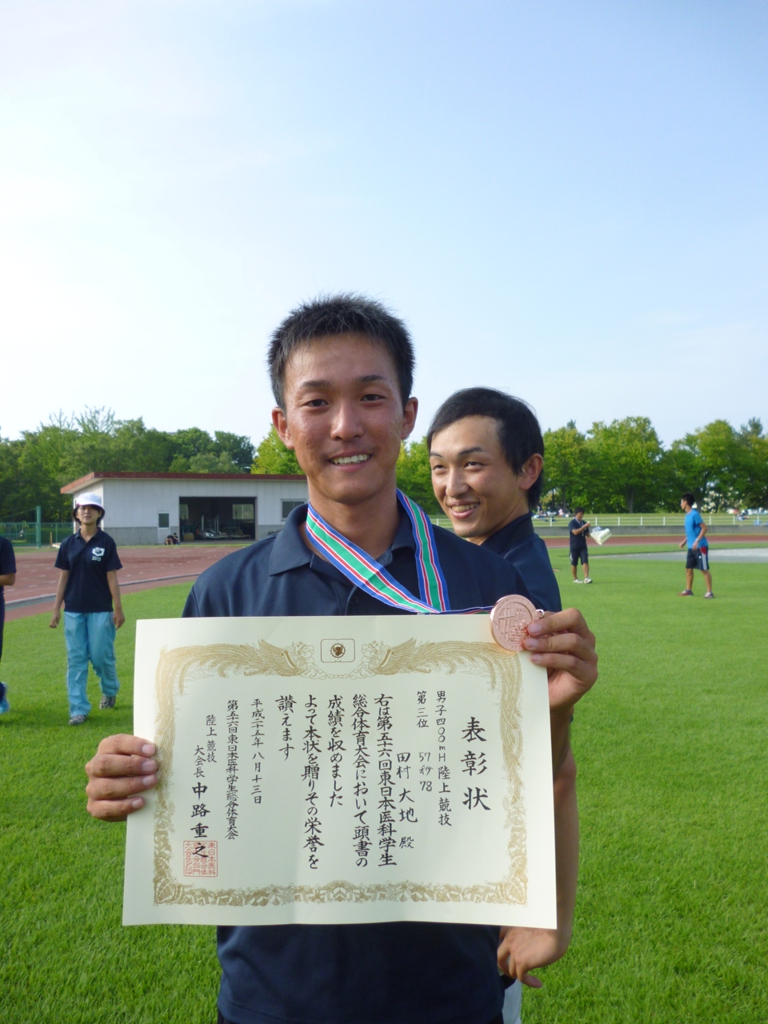 表彰状
男子四〇〇mH陸上競技
第三位 57秒78
田村大地殿
右は第五十六回東日本医科学生
総合体育大会において頭書の
成績を収めました
よって本状を贈りその栄誉を
讃えます
平成二十五年八月十三日
第五十六回東日本医科学生総合体育大会
陸上競技
大会長 中路重之